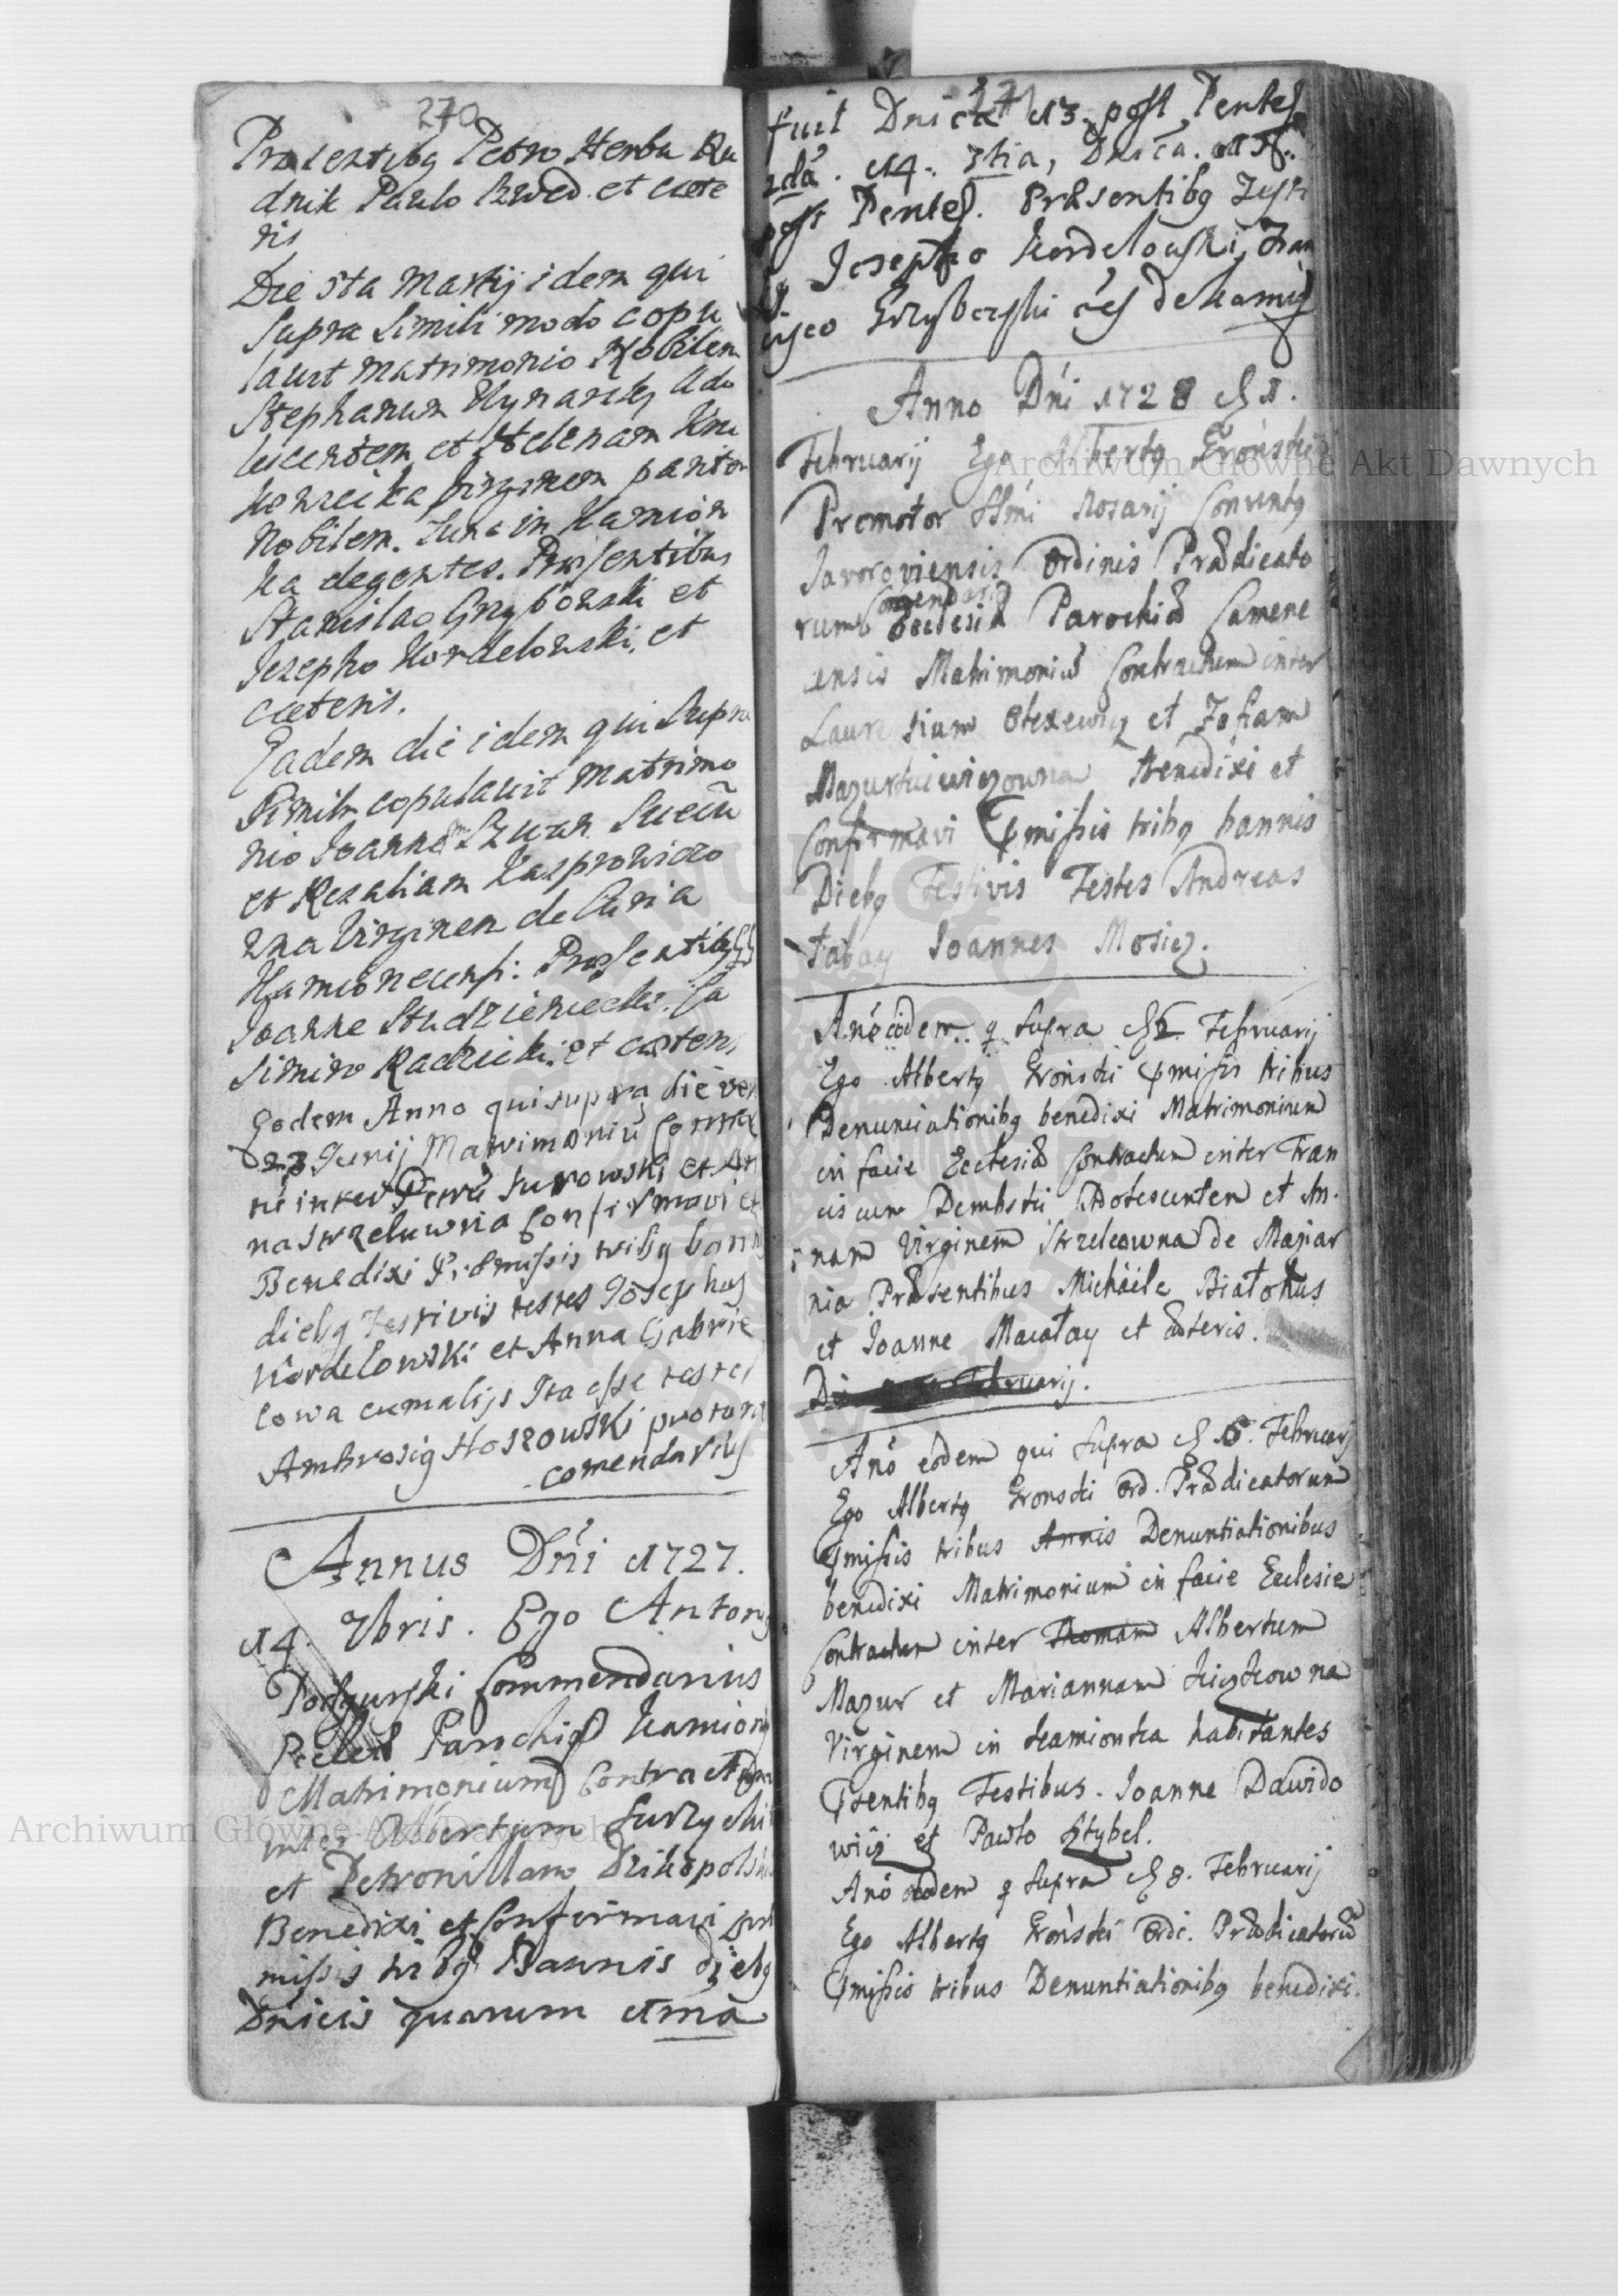 270
Præsentibq Petro Herba Ru
dnik Paulo et cæte
ris
Die sta Martij idem qui
supra simili modo copu
lauit matrimonio Nobilem
Stephanum Ado
lescentem et Helenam
virginem pariter
Nobilem. Tunc in Kamion
ka degentes. Præsentibus
Stanislao Grzybowski et
Josepho Kordelowski, et
cæteris.
Eadem die idem qui supra
simili copulauit matrimo
nio Joannem
et Rozaliam Kasprowiczo
wna Virginem de Curia
Kamionecensi: Præsentibq
Joanne Studzieniecki. Ca
simiro Radzicki et cæteris
Eodem Anno qui supra die ver
23 Junij Matrimoniũ Contrac
tũ inter Petrũ Turowski et An
na Strzeluwna Confirmavi et
Benedixi Præmissis tribq bannis
diebq Festivis testes Josephus
Kordelowski et Anna Gabrie
lowa cum alijs Ita esse testor
Ambrosiq Hoszowski protunc
comendarius
Annus Dńi 1727.
14. 7bris. Ego Antonq
Commendarius
Eccles Parochiæ Kamionq
Matrimonium Contractum
inter Albertum
et Petronillam
Benedixi et Confirmavi præ
missis tribq Bannis diebq
Dnicis quorum 1ma
fuit Dnica 13. post Pentes
2da. 14. 3tia, Dnica. 15.
post Pentes. Præsentibq
Josepho Kordelowski, Fran
cisco Grzyberski
Anno Dńi 1728 d 1.
Februarij Ego Albertq Groński
Promotor SSmi Rosarij Conventq
Javoroviensis Ordinis Prædicato
Comendariq
rum Ecclesiæ Parochiæ Camene
censis Matrimoniũ Contractum inter
Laurentium Olexewicz et Zofiam
Mazurkiewiczowna Benedixi et
Confirmavi præmissis tribq bannis
Diebq Festivis Testes Andreas
Tabay Joannes Mosicz.
Anó eódem q supra d 2 Februarij
Ego Albertq Grónski præmissis tribus
Denunciationibq benedixi Matrimonium
in facie Ecclesiæ Contractum inter Fran
ciscum Dembski Adolescentem et An-
nam Virginem Strzelcowna de Maziar
nia Præsentibus Michäile Białokus
et Joanne Macałay et Cæteris.
Die Februarij.
Anó eódem qui supra d 5. Februarij
Ego Albertq Gronski Ord. Prædicatorum
præmissis tribus Annis Denuntiationibus
benedixi Matrimonium in facie Ecclesiæ
Contractum inter Thomam Albertum
Mazur et Mariannam Kiczkowna
Virginem in Kamionka habitantes
Præsentibq Testibus. Joanne Dawido
wicz et Pawło Sztybel.
Anó eodem q supra d 8. Februarij
Ego Albertq Grónski Ordi. Prædicatorũ
præmissis tribus Denuntiationibq benedixi.
Archiwum Główne Akt Dawnych
Archiwum Główne Akt Dawnych